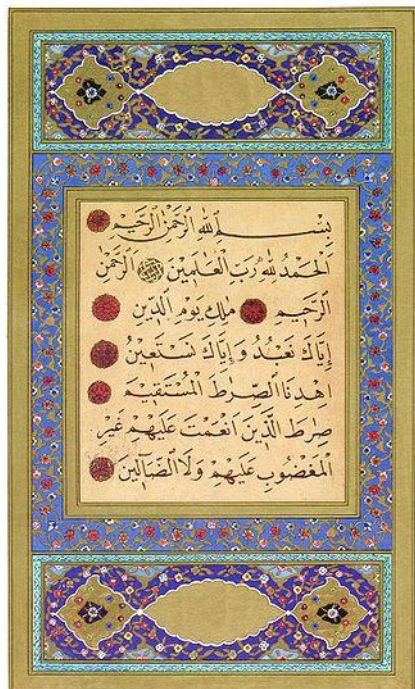 بِسْمِ اللهِ الرَّحْمٰنِ الرَّحِيمِ
الْحَمْدُ لِلّٰهِ رَبِّ الْعَالَمِينَ الرَّحْمٰنِ
الرَّحِيمِ مٰلِكِ يَوْمِ الدِّينِ
إِيَّاكَ نَعْبُدُ وَإِيَّاكَ نَسْتَعِينُ
اِهْدِنَا الصِّرَاطَ الْمُسْتَقِيمَ
صِرَاطَ الَّذِينَ اَنْعَمْتَ عَلَيْهِمْ غَيْرِ
الْمَغْضُوبِ عَلَيْهِمْ وَلَا الضَّآلِّينَ